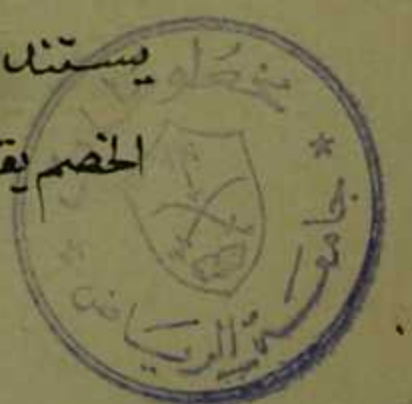 يستند
الخصم يق
مخطوطات
جامعة الرياض